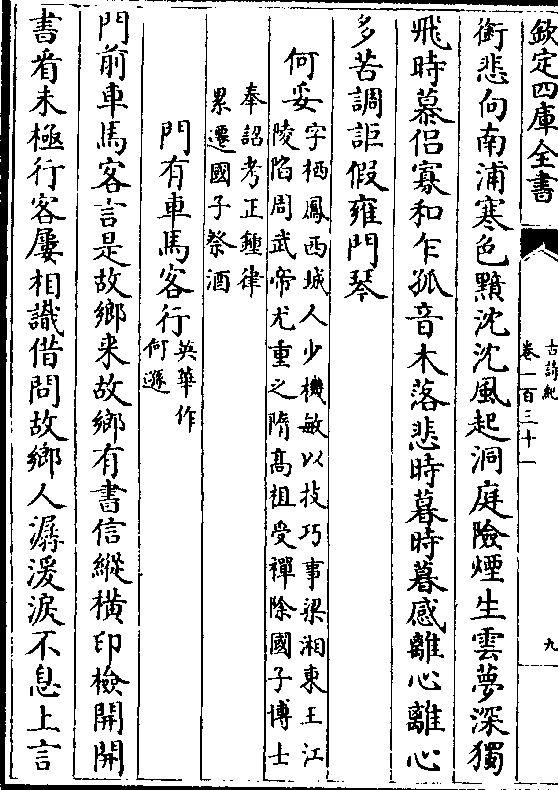 欽定四庫全書
古詩紀
卷一百三十一
九
銜悲向南浦寒色黯沈沈風起洞庭險煙生雲夢深獨
飛時慕侶寡和乍孤音木落悲時暮時暮感離心離心
多苦調詎假雍門琴
何妥
字栖鳳西城人少機敏以技巧事梁湘東王江
陵陷周武帝尤重之隋高祖受禪除國子博士
奉詔考正鍾律
累遷國子祭酒
門有車馬客行
英華作
何遜
門前車馬客言是故鄉来故鄉有書信縱橫印檢開開
書看未極行客屢相識借問故鄉人潺湲淚不息上言